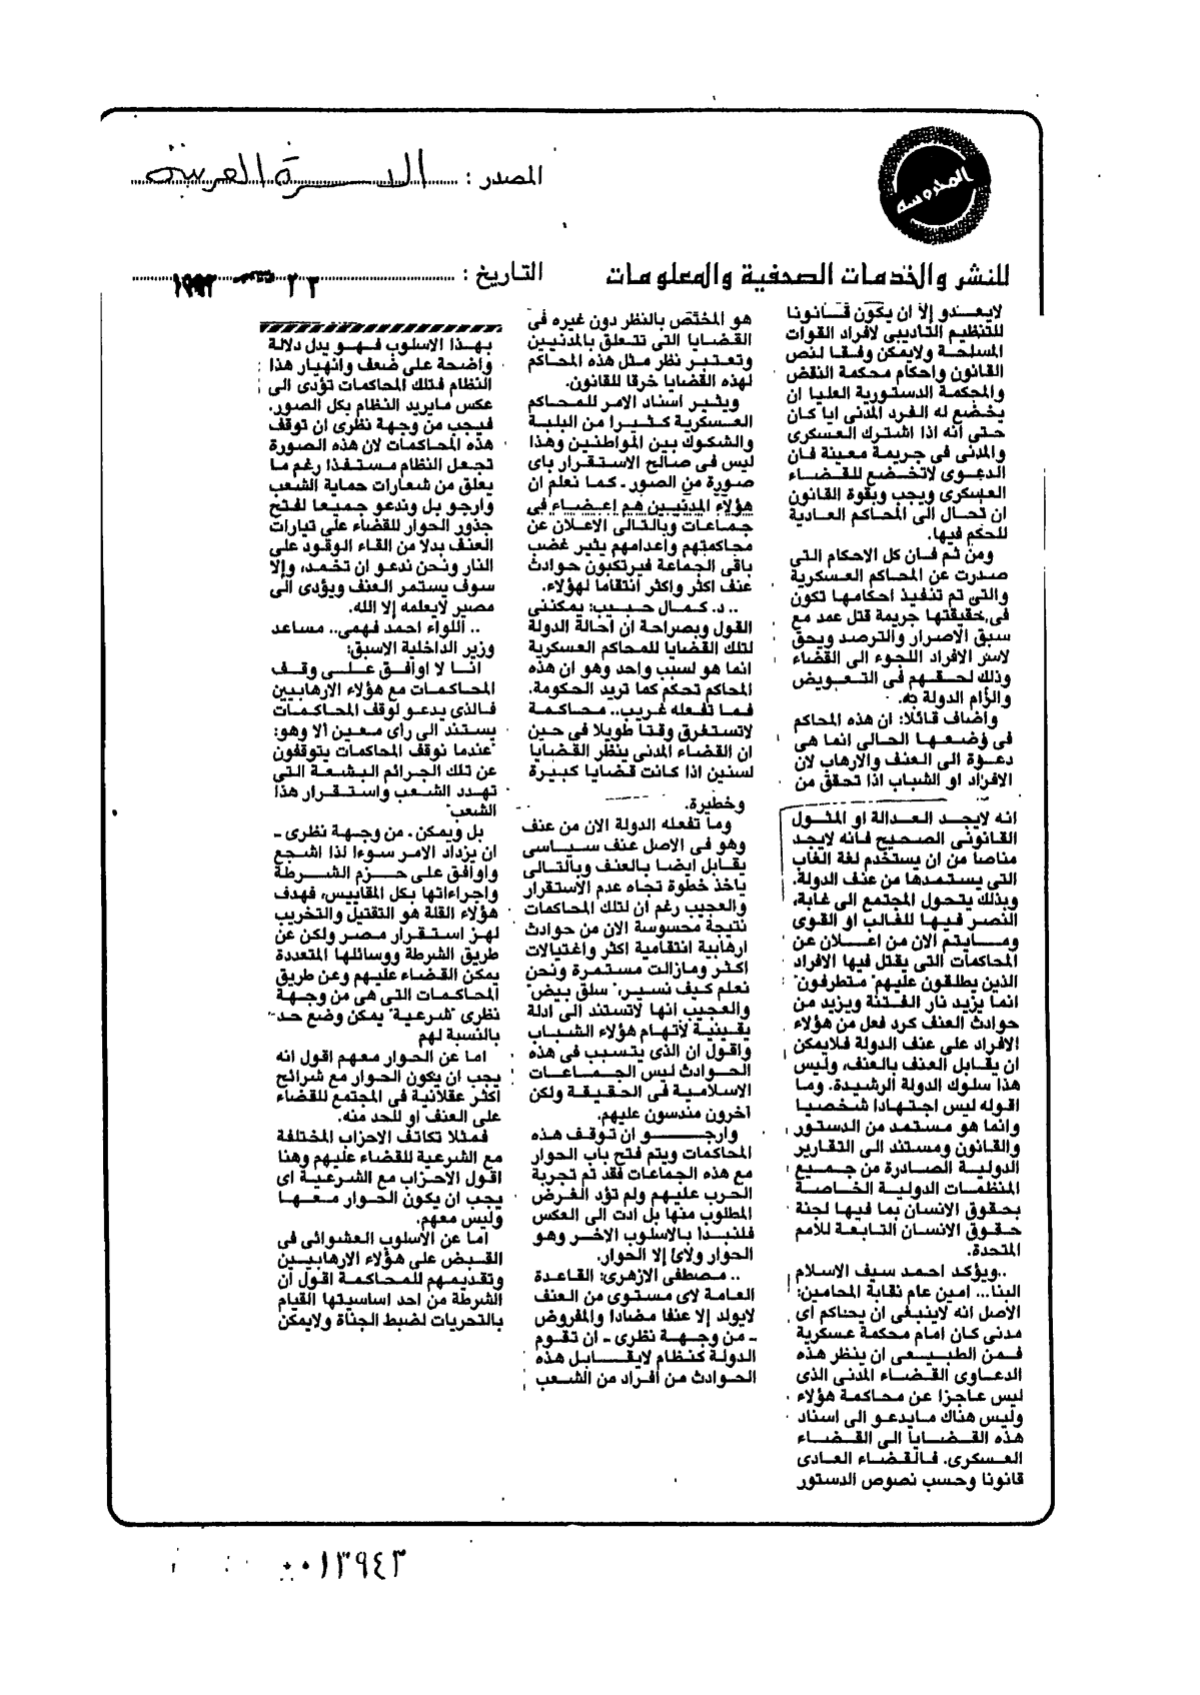 المحروسة
المصدر :
العربية
للنشر والخدمات الصحفية والمعلومات
التاريخ :
٢٣ ١٩٩٣
لايعدو إلا ان يكون قانونا
للتنظيم التاديبى لافراد القوات
المسلحة ولايمكن وفقا لنص
القانون واحكام محكمة النقض
والمحكمة الدستورية العليا ان
يخضع له الفرد المدنى ايا كان
حتى انه اذا اشترك العسكرى
والمدنى فى جريمة معينة فان
الدعوى لاتخضع للقضاء
العسكرى ويجب وبقوة القانون
ان تحال الى المحاكم العادية
للحكم فيها.
ومن ثم فان كل الاحكام التى
صدرت عن المحاكم العسكرية
والتى تم تنفيذ احكامها تكون
فى حقيقتها جريمة قتل عمد مع
سبق الاصرار والترصد ويحق
لاسر الافراد اللجوء الى القضاء
وذلك لحقهم فى التعويض
والزام الدولة به.
واضاف قائلا: ان هذه المحاكم
فى وضعها الحالى انما هى
دعوة الى العنف والارهاب لان
الافراد او الشباب اذا تحقق من
انه لايجد العدالة او المثول
القانونى الصحيح فانه لايجد
مناصا من ان يستخدم لغة الغاب
التى يستمدها من عنف الدولة.
وبذلك يتحول المجتمع الى غابة،
النصر فيها للغالب او القوى
ومايتم الان من اعلان عن
المحاكمات التى يقتل فيها الافراد
الذين يطلقون عليهم "متطرفون"
انما يزيد نار الفتنة ويزيد من
حوادث العنف كرد فعل من هؤلاء
الافراد على عنف الدولة فلايمكن
ان يقابل العنف بالعنف، وليس
هذا سلوك الدولة الرشيدة. وما
اقوله ليس اجتهادا شخصيا
وانما هو مستمد من الدستور
والقانون ومستند الى التقارير
الدولية الصادرة من جميع
المنظمات الدولية الخاصة
بحقوق الانسان بما فيها لجنة
حقوق الانسان التابعة للأمم
المتحدة.
..ويؤكد احمد سيف الاسلام
البنا... امين عام نقابة المحامين:
الاصل انه لاينبغى ان يحاكم اى
مدنى كان امام محكمة عسكرية
فمن الطبيعى ان ينظر هذه
الدعاوى القضاء المدنى الذى
ليس عاجزا عن محاكمة هؤلاء
وليس هناك مايدعو الى اسناد
هذه القضايا الى القضاء
العسكرى. فالقضاء العادى
قانونا وحسب نصوص الدستور
هو المختص بالنظر دون غيره فى
القضايا التى تتعلق بالمدنيين
وتعتبر نظر مثل هذه المحاكم
لهذه القضايا خرقا للقانون.
ويثير اسناد الامر للمحاكم
العسكرية كثيرا من البلبة
والشكوك بين المواطنين وهذا
ليس فى صالح الاستقرار باى
صورة من الصور.. كما نعلم ان
هؤلاء المدنيين هم اعضاء فى
جماعات وبالتالى الاعلان عن
محاكمتهم واعدامهم يثير غضب
باقى الجماعة فيرتكبون حوادث
عنف اكثر واكثر انتقاما لهؤلاء.
.. د. كمال حبيب: يمكننى
القول وبصراحة ان احالة الدولة
لتلك القضايا للمحاكم العسكرية
انما هو لسبب واحد وهو ان هذه
المحاكم تحكم كما تريد الحكومة.
فما تفعله غريب.. محاكمة
لاتستغرق وقتا طويلا فى حين
ان القضاء المدنى ينظر القضايا
لسنين اذا كانت قضايا كبيرة
وخطيرة.
وما تفعله الدولة الان من عنف
وهو فى الاصل عنف سياسى
يقابل ايضا بالعنف وبالتالى
ياخذ خطوة تجاه عدم الاستقرار
والعجيب رغم ان لتلك المحاكمات
نتيجة محسوسة الان من حوادث
ارهابية انتقامية اكثر واغتيالات
اكثر ومازالت مستمرة ونحن
نعلم كيف تسير، "سلق بيض"
والعجيب انها لاتستند الى ادلة
يقينية لأتهام هؤلاء الشباب
واقول ان الذى يتسبب فى هذه
الحوادث ليس الجماعات
الاسلامية فى الحقيقة ولكن
آخرون مندسون عليهم.
وارجو ان توقف هذه
المحاكمات ويتم فتح باب الحوار
مع هذه الجماعات فقد تم تجربة
الحرب عليهم ولم تؤد الغرض
المطلوب منها بل ادت الى العكس
فلنبدا بالاسلوب الاخر وهو
الحوار ولائ إلا الحوار.
.. مصطفى الازهرى: القاعدة
العامة لاى مستوى من العنف
لايولد إلا عنفا مضادا والمفروض
- من وجهة نظرى - ان تقوم
الدولة كنظام لايقابل هذه
الحوادث من أفراد من الشعب
بهذا الاسلوب فهو يدل دلالة
واضحة على ضعف وانهيار هذا
النظام فتلك المحاكمات تؤدى الى
عكس مايريد النظام بكل الصور.
فيجب من وجهة نظرى ان توقف
هذه المحاكمات لان هذه الصورة
تجعل النظام مستفذا رغم ما
يعلق من شعارات حماية الشعب
وارجو بل وندعو جميعا لفتح
جذور الحوار للقضاء على تيارات
العنف بدلا من القاء الوقود على
النار ونحن ندعو ان تخمد، وإلا
سوف يستمر العنف ويؤدى الى
مصير لايعلمه إلا الله.
.. اللواء احمد فهمى.. مساعد
وزير الداخلية الاسبق:
انا لا اوافق على وقف
المحاكمات مع هؤلاء الارهابيين
فالذى يدعو لوقف المحاكمات
يستند الى راى معين ألا وهو:
"عندما نوقف المحاكمات يتوقفون
عن تلك الجرائم البشعة التى
تهدد الشعب واستقرار هذا
الشعب"
بل ويمكن - من وجهة نظرى -
ان يزداد الامر سوءا لذا اشجع
واوافق على حزم الشرطة
واجراءاتها بكل المقاييس، فهدف
هؤلاء القلة هو التقتيل والتخريب
لهز استقرار مصر ولكن عن
طريق الشرطة ووسائلها المتعددة
يمكن القضاء عليهم وعن طريق
المحاكمات التى هى من وجهة
نظرى "شرعية" يمكن وضع حد
بالنسبة لهم
اما عن الحوار معهم اقول انه
يجب ان يكون الحوار مع شرائح
اكثر عقلانية فى المجتمع للقضاء
على العنف او للحد منه.
فمثلا تكاتف الاحزاب المختلفة
مع الشرعية للقضاء عليهم وهنا
اقول الاحزاب مع الشرعية اى
يجب ان يكون الحوار معها
وليس معهم.
اما عن الأسلوب العشوائى فى
القبض على هؤلاء الارهابيين
وتقديمهم للمحاكمة اقول ان
الشرطة من احد اساسيتها القيام
بالتحريات لضبط الجناة ولايمكن
٠٠١٣٩٤٣